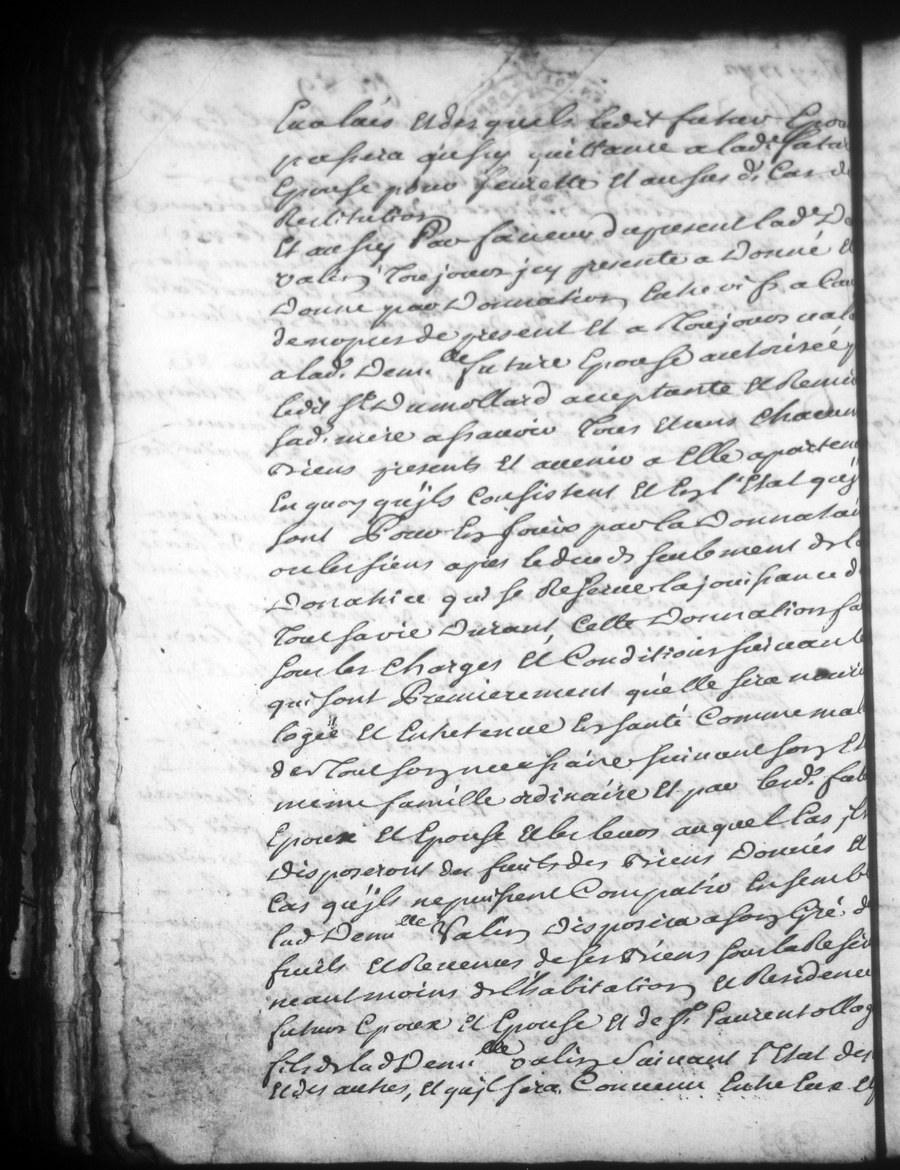 Encolais et desquels ledit futur Epou
passera aussy quittance a lad.e futu
Epouse pour seurette et au sus.d Cas de
Restitution
Et aussy Par faveur du present lad.e D
valin Toujours icy presente a Donné et
Donne par Donnation Entre vifs a Cau
de nopces de present et a Toujours val
a lad. Demlle future Epouse autorisée p
ledit Sr Dumollard acceptante et Remer
sad. mere a sçavoir Tous et uns Chacun
Biens presents et avenir a Elle aparten
En quoy quils Consistent et En l'Etat quil
sont Pour En jouir par la Donnatai
ou les siens apres le deceds seulement de l
Donatrice qui se Reserve la jouissance d
Tout sa vie Durant, Cette Donnation fa
sous les Charges et Conditions suivant
qui sont Premierement quelle sera nourr
logée et Entretenue En santé Comme mal
de Tout son necessaire suivant son Et
meme famille ordinaire et par lesd.
Epoux et Epouse et les leurs auquel Cas ils
Disposeront des fruits des Biens Donnés et
Cas quils ne puissent Compatir Ensemb
lad Demlle Valin Disposera a son Gré d
fruits et Revenus de ses Biens sous la Reser
neantmoins de l'habitation et Residence
futurs Epoux et Epouse et de Sr Laurent ollag
fils de lad Demlle valin Suivant l'Etat des
et des autres, et quil sera Convenu Entre Eux et